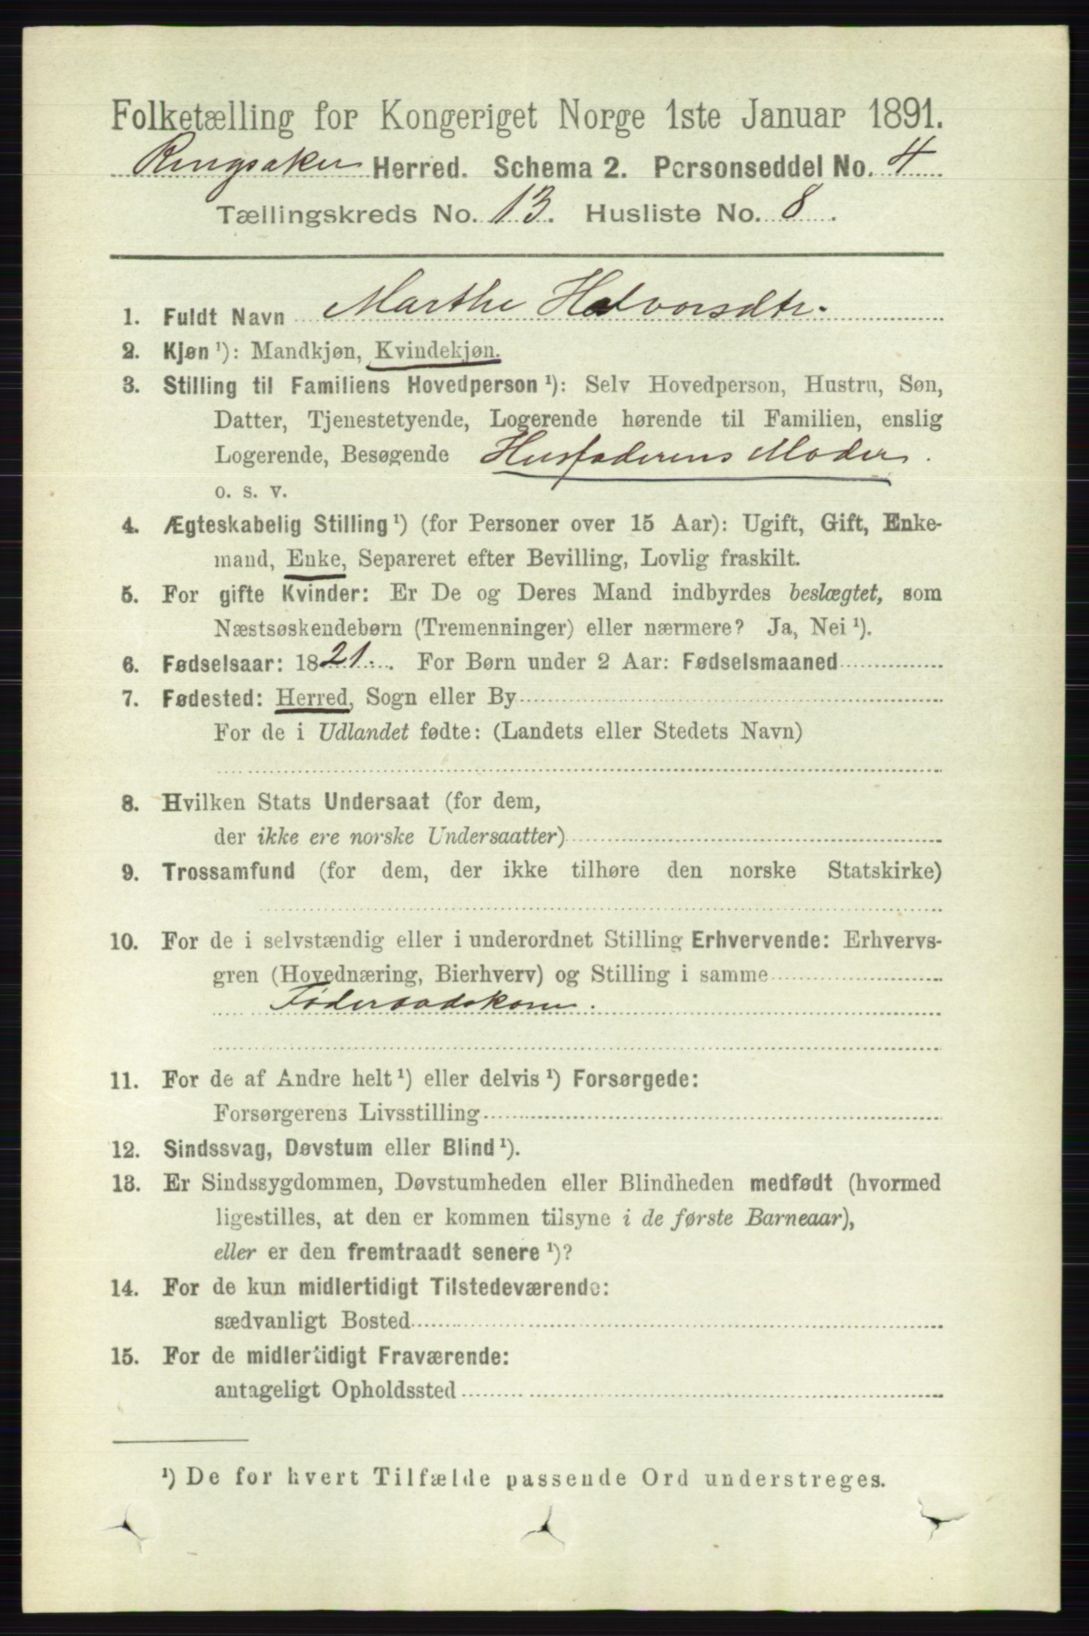 Folketælling for Kongeriget Norge 1ste Januar 1891.
Ringsaker Herred. Schema 2. Personseddel No. 4
Tællingskreds No. 13. Husliste No. 8.
1. Fuldt Navn Marthe Halvorsdtr.
2. Kjøn ¹): Mandkjøn, Kvindekjøn.
3. Stilling til Familiens Hovedperson ¹): Selv Hovedperson, Hustru, Søn,
Datter, Tjenestetyende, Logerende hørende til Familien, enslig
Logerende, Besøgende Husfaderens Moder.
o. s. v.
4. Ægteskabelig Stilling ¹) (for Personer over 15 Aar): Ugift, Gift, Enke-
mand, Enke, Separeret efter Bevilling, Lovlig fraskilt.
5. For gifte Kvinder: Er De og Deres Mand indbyrdes beslægtet, som
Næstsøskendebørn (Tremenninger) eller nærmere? Ja, Nei ¹).
6. Fødselsaar: 1821. For Børn under 2 Aar: Fødselsmaaned
7. Fødested: Herred, Sogn eller By
For de i Udlandet fødte: (Landets eller Stedets Navn)
8. Hvilken Stats Undersaat (for dem,
der ikke ere norske Undersaatter)
9. Trossamfund (for dem, der ikke tilhøre den norske Statskirke)
10. For de i selvstændig eller i underordnet Stilling Erhvervende: Erhvervs-
gren (Hovednæring, Bierhverv) og Stilling i samme
Føderaadskone.
11. For de af Andre helt ¹) eller delvis ¹) Forsørgede:
Forsørgerens Livsstilling
12. Sindssvag, Døvstum eller Blind ¹).
13. Er Sindssygdommen, Døvstumheden eller Blindheden medfødt (hvormed
ligestilles, at den er kommen tilsyne i de første Barneaar),
eller er den fremtraadt senere ¹)?
14. For de kun midlertidigt Tilstedeværende:
sædvanligt Bosted
15. For de midlertidigt Fraværende:
antageligt Opholdssted
¹) De for hvert Tilfælde passende Ord understreges.